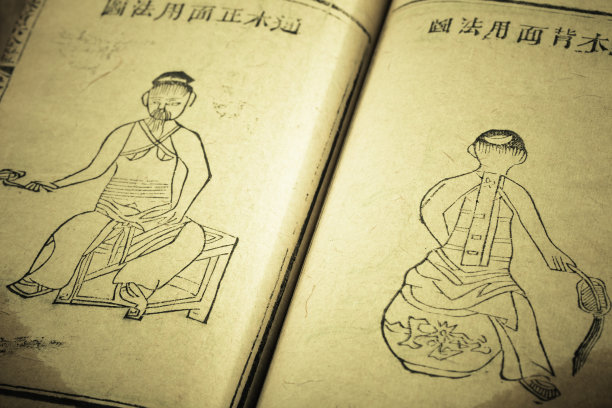 木背面用法圖
通木正面用法圖